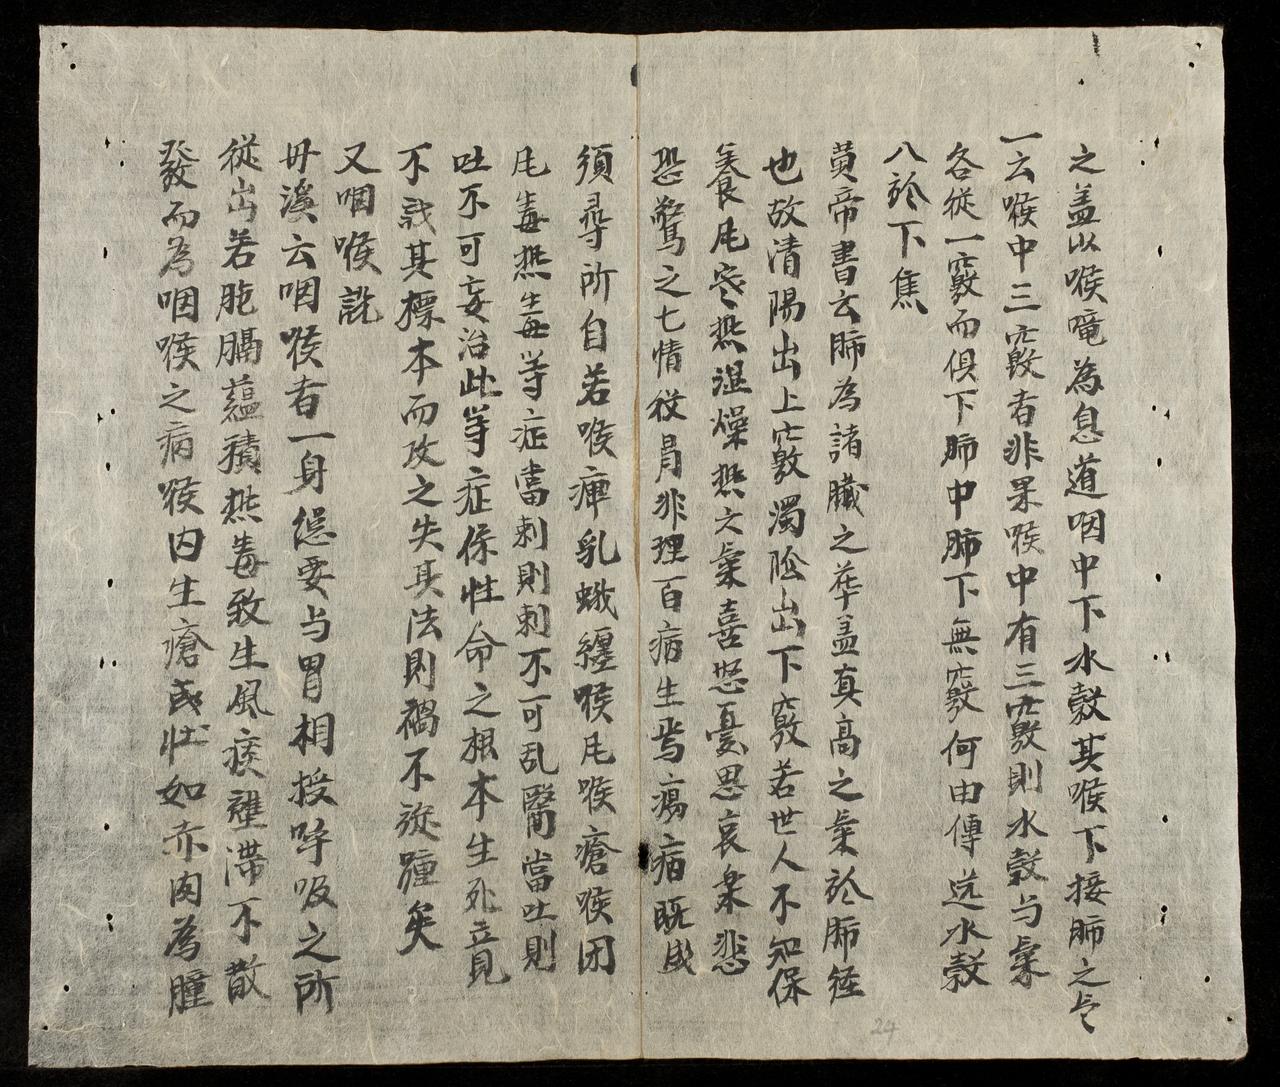 之盖以喉嚨為息道咽中下水穀其喉下接肺之气
一云喉中三竅者非果喉中有三竅則水穀与氣
各從一竅而俱下肺中肺下無竅何由傳送水穀
入於下焦
黄帝書云肺為諸臟之華盖真高之氣於肺経
也故清陽出上竅濁阴出下竅若世人不知保
養風寒热湿燥热六氣喜怒憂思哀樂悲
恐驚之七情役冐非理百病生焉病既成
須尋所自若喉痺乳蛾纏喉風喉瘡喉闭
風毒热毒等症當刺則刺不可乱醫當吐則
吐不可妄治此等症係性命之根本生死竟
不識其標本而攻之失其法則禍不旋踵矣
又咽喉説
丹溪云咽喉者一身緫要与胃相授呼吸之所
從出若胞膈蕴積热毒致生風痰壅滞不散
發而為咽喉之病喉内生瘡或壮如赤肉為腫
24